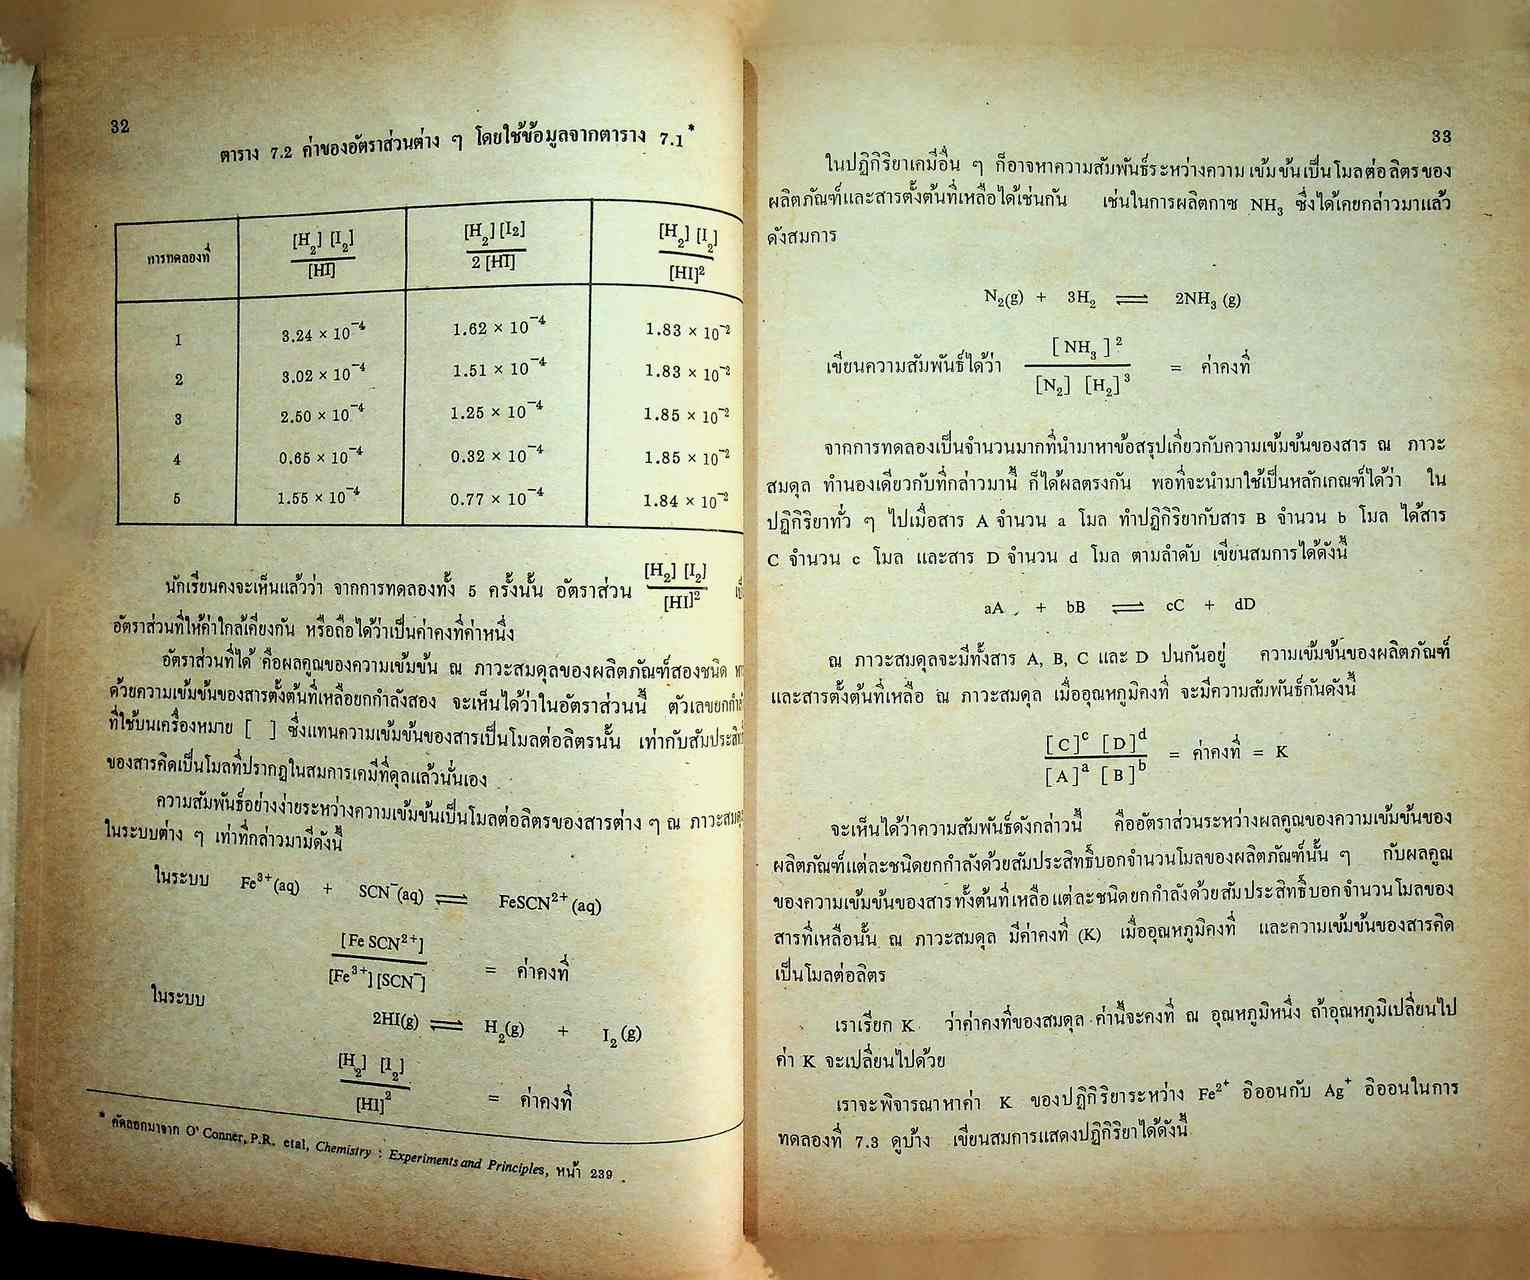 32
ตาราง 7.2 ค่าของอัตราส่วนต่าง ๆ โดยใช้ข้อมูลจากตาราง 7.1*
การทดลองที่ [H₂] [I₂] / [HI] [H₂] [I₂] / 2 [HI] [H₂] [I₂] / [HI]²
1 3.24 × 10⁻⁴ 1.62 × 10⁻⁴ 1.83 × 10⁻²
2 3.02 × 10⁻⁴ 1.51 × 10⁻⁴ 1.83 × 10⁻²
3 2.50 × 10⁻⁴ 1.25 × 10⁻⁴ 1.85 × 10⁻²
4 0.65 × 10⁻⁴ 0.32 × 10⁻⁴ 1.85 × 10⁻²
5 1.55 × 10⁻⁴ 0.77 × 10⁻⁴ 1.84 × 10⁻²
นักเรียนคงจะเห็นแล้วว่า จากการทดลองทั้ง 5 ครั้งนั้น อัตราส่วน [H₂] [I₂] / [HI]²
อัตราส่วนที่ให้ค่าใกล้เคียงกัน หรือถือได้ว่าเป็นค่าคงที่ค่าหนึ่ง
อัตราส่วนที่ได้ คือผลคูณของความเข้มข้น ณ ภาวะสมดุลของผลิตภัณฑ์สองชนิด
ด้วยความเข้มข้นของสารตั้งต้นที่เหลือยกกำลังสอง จะเห็นได้ว่าในอัตราส่วนนี้ ตัวเลขยกกำลัง
ที่ใช้บนเครื่องหมาย [ ] ซึ่งแทนความเข้มข้นของสารเป็นโมลต่อลิตรนั้น เท่ากับสัมประสิทธิ์
ของสารคิดเป็นโมลที่ปรากฏในสมการเคมีที่ดุลแล้วนั่นเอง
ความสัมพันธ์อย่างง่ายระหว่างความเข้มข้นเป็นโมลต่อลิตรของสารต่าง ๆ ณ ภาวะสมดุล
ในระบบต่าง ๆ เท่าที่กล่าวมามีดังนี้
ในระบบ Fe³⁺(aq) + SCN⁻(aq) ⇌ FeSCN²⁺(aq)
[Fe SCN²⁺] / [Fe³⁺] [SCN⁻] = ค่าคงที่
ในระบบ
2HI(g) ⇌ H₂(g) + I₂(g)
[H₂] [I₂] / [HI]² = ค่าคงที่
* คัดลอกมาจาก O' Conner, P.R. etal, Chemistry : Experiments and Principles, หน้า 239
33
ในปฏิกิริยาเคมีอื่น ๆ ก็อาจหาความสัมพันธ์ระหว่างความเข้มข้นเป็นโมลต่อลิตรของ
ผลิตภัณฑ์และสารตั้งต้นที่เหลือได้เช่นกัน เช่นในการผลิตกาซ NH₃ ซึ่งได้เคยกล่าวมาแล้ว
ดังสมการ
N₂(g) + 3H₂ ⇌ 2NH₃ (g)
เขียนความสัมพันธ์ได้ว่า [ NH₃ ]² / [N₂] [H₂]³ = ค่าคงที่
จากการทดลองเป็นจำนวนมากที่นำมาหาข้อสรุปเกี่ยวกับความเข้มข้นของสาร ณ ภาวะ
สมดุล ทำนองเดียวกับที่กล่าวมานี้ ก็ได้ผลตรงกัน พอที่จะนำมาใช้เป็นหลักเกณฑ์ได้ว่า ใน
ปฏิกิริยาทั่ว ๆ ไปเมื่อสาร A จำนวน a โมล ทำปฏิกิริยากับสาร B จำนวน b โมล ได้สาร
C จำนวน c โมล และสาร D จำนวน d โมล ตามลำดับ เขียนสมการได้ดังนี้
aA + bB ⇌ cC + dD
ณ ภาวะสมดุลจะมีทั้งสาร A, B, C และ D ปนกันอยู่ ความเข้มข้นของผลิตภัณฑ์
และสารตั้งต้นที่เหลือ ณ ภาวะสมดุล เมื่ออุณหภูมิคงที่ จะมีความสัมพันธ์กันดังนี้
[ C ]ᶜ [ D ]ᵈ / [ A ]ᵃ [ B ]ᵇ = ค่าคงที่ = K
จะเห็นได้ว่าความสัมพันธ์ดังกล่าวนี้ คืออัตราส่วนระหว่างผลคูณของความเข้มข้นของ
ผลิตภัณฑ์แต่ละชนิดยกกำลังด้วยสัมประสิทธิ์บอกจำนวนโมลของผลิตภัณฑ์นั้น ๆ กับผลคูณ
ของความเข้มข้นของสารทั้งต้นที่เหลือแต่ละชนิดยกกำลังด้วยสัมประสิทธิ์บอกจำนวนโมลของ
สารที่เหลือนั้น ณ ภาวะสมดุล มีค่าคงที่ (K) เมื่ออุณหภูมิคงที่ และความเข้มข้นของสารคิด
เป็นโมลต่อลิตร
เราเรียก K ว่าค่าคงที่ของสมดุล ค่านี้จะคงที่ ณ อุณหภูมิหนึ่ง ถ้าอุณหภูมิเปลี่ยนไป
ค่า K จะเปลี่ยนไปด้วย
เราจะพิจารณาหาค่า K ของปฏิกิริยาระหว่าง Fe²⁺ อิออนกับ Ag⁺ อิออนในการ
ทดลองที่ 7.3 ดูบ้าง เขียนสมการแสดงปฏิกิริยาได้ดังนี้